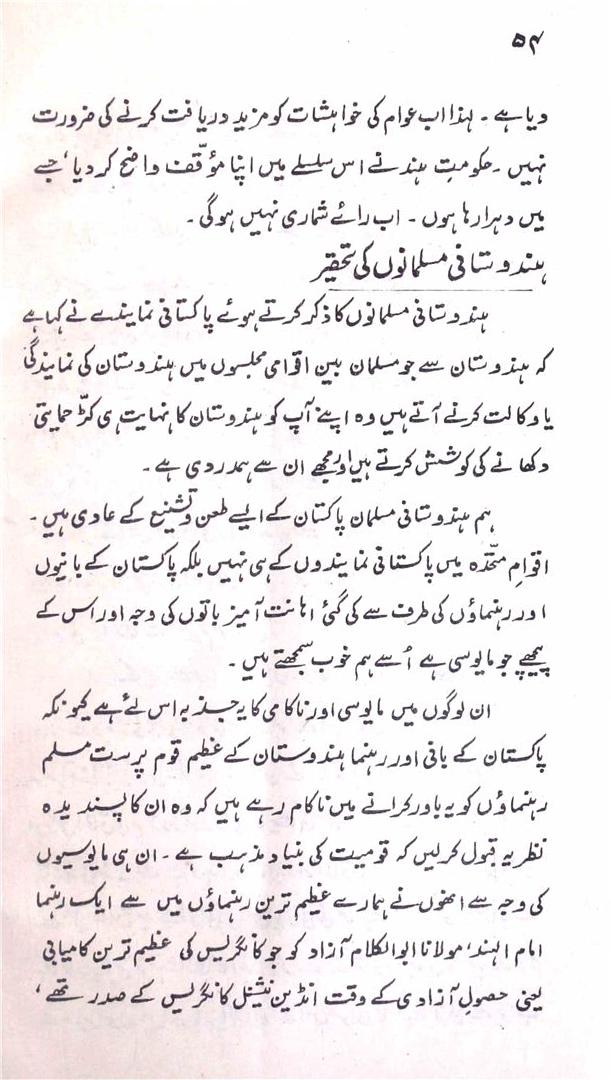 ۵۴
دیا ہے ۔ لہذا اب عوام کی خواہشات کو مزید دریافت کرنے کی ضرورت
نہیں ۔ حکومتِ ہند نے اس سلسلے میں اپنا مؤقف واضح کر دیا، جسے
میں دہرا رہا ہوں ۔ اب رائے شماری نہیں ہوگی ۔
ہندوستانی مسلمانوں کی تحقیر
ہندوستانی مسلمانوں کا ذکر کرتے ہوئے پاکستانی نمایندے نے کہا ہے
کہ ہندوستان سے جو مسلمان بین اقوامی مجلسوں میں ہندوستان کی نمایندگی
یا وکالت کرنے آتے ہیں وہ اپنے آپ کو ہندوستان کا نہایت ہی کٹر حمایتی
دکھانے کی کوشش کرتے ہیں اور مجھے ان سے ہمدردی ہے ۔
ہم ہندوستانی مسلمان پاکستان کے ایسے طعن و تشنیع کے عادی ہیں ۔
اقوامِ متّحدہ میں پاکستانی نمایندوں کے ہی نہیں بلکہ پاکستان کے بانیوں
اور رہنماؤں کی طرف سے کی گئی اہانت آمیز باتوں کی وجہ اور اس کے
پیچھے جو مایوسی ہے اُسے ہم خوب سمجھتے ہیں ۔
ان لوگوں میں مایوسی اور ناکامی کا یہ جذبہ اس لئے ہے کیونکہ
پاکستان کے بانی اور رہنما ہندوستان کے عظیم قوم پرست مسلم
رہنماؤں کو یہ باور کرانے میں ناکام رہے ہیں کہ وہ ان کا پسندیدہ
نظریہ قبول کرلیں کہ قومیت کی بنیاد مذہب ہے ۔ ان ہی مایوسیوں
کی وجہ سے انھوں نے ہمارے عظیم ترین رہنماؤں میں سے ایک رہنما
امام الہند، مولانا ابوالکلام آزاد کو جو کانگریس کی عظیم ترین کامیابی
یعنی حصولِ آزادی کے وقت انڈین نیشنل کانگریس کے صدر تھے،